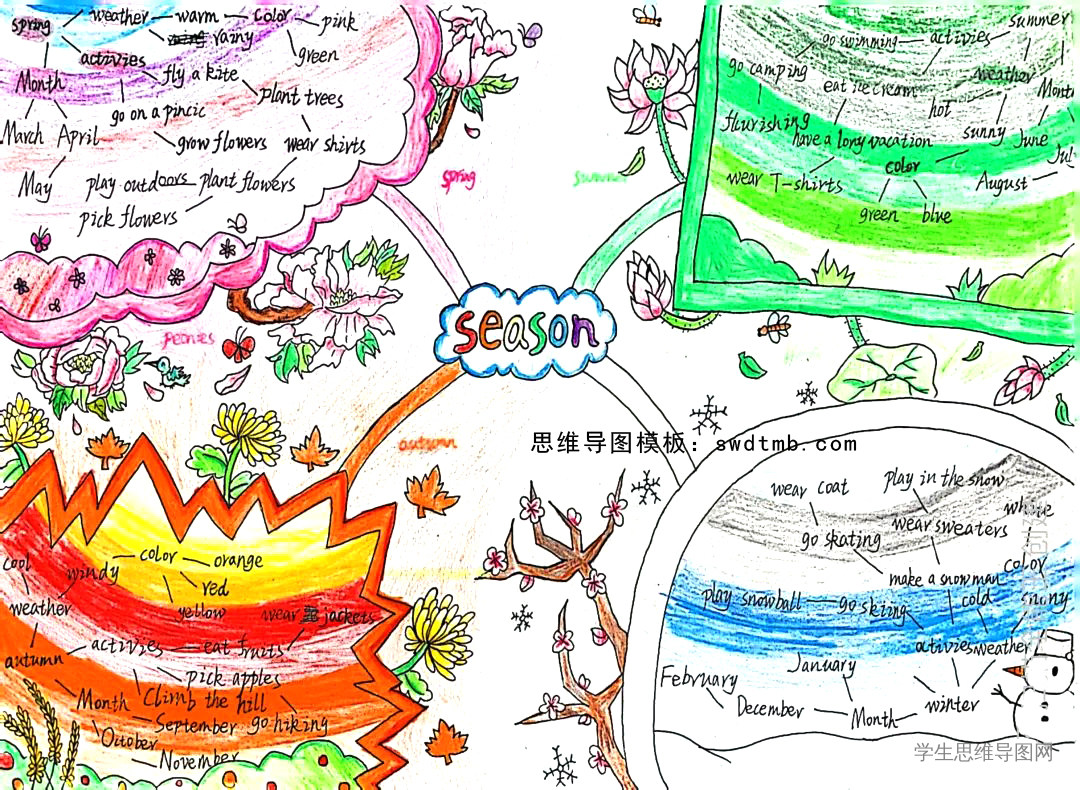 spring
weather
warm
color
pink
rainy
green
activies
fly a kite
Month
plant trees
go on a pincic
March
April
grow flowers
wear shirts
May
play outdoors
plant flowers
pick flowers
spring
summer
peonies
summer
go swimming
activies
weather
go camping
eat ice cream
hot
flurishing
have a lony vacation
sunny
June
color
wear T-shirts
August
green
blue
season
autumn
思维导图模板：swdtmb.com
cool
windy
color
orange
red
yellow
weather
wear
jackets
activies
eat fruits
autumn
pick apples
Month
Climb the hill
September
go hiking
October
November
wear coat
play in the snow
white
go skating
wear sweaters
color
make a snowman
play snowball
go skiing
cold
snowy
activies
weather
January
February
December
Month
winter
学生思维导图网